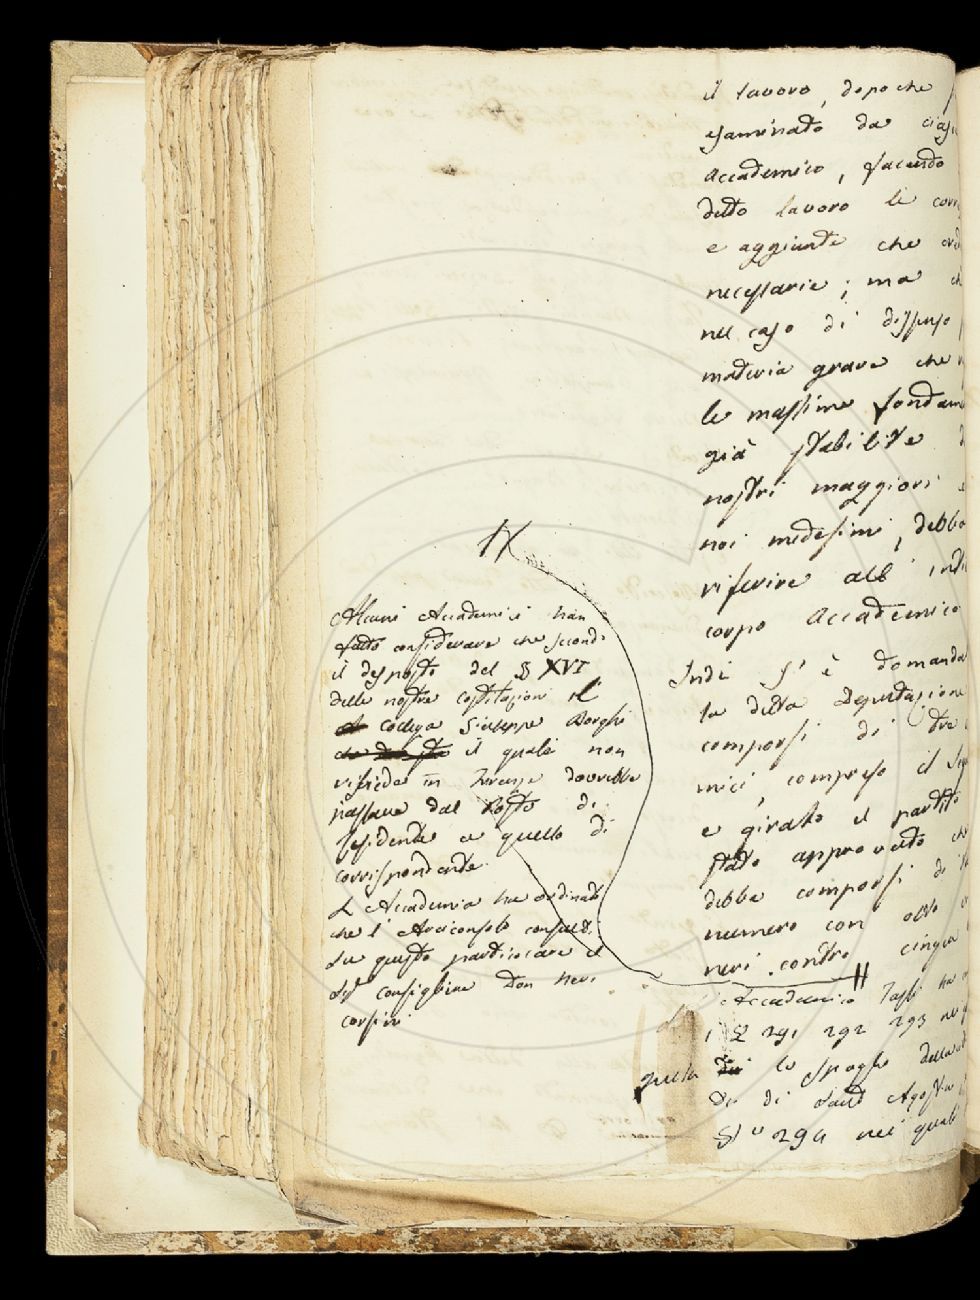 il lavoro, dopo che
esaminato da
accademico, facendo
detto lavoro le
e aggiunte che
necessarie; ma
nel caso di disputa
materia grave che
le massime
già stabilite
nostri maggiori
noi medesimi, debba
riferire all'
corpo Accademico
Indi s'è domanda
la detta Deputazione
comporsi di tre
mici, compreso il
e girato il partito
stato approvato
debba comporsi di
numero con otto
neri contro cinque
Accademico ha
i §§ 291 292 293
quella lo spoglio della
di Sant Agost
§ 294 nei quali
IX
Alcuni Accademici han
fatto considerare che secondo
il disposto del § XVI
delle nostre costituzioni il
collega Giuseppe Borghi
il quale non
risiede in Firenze dovrebbe
passare dal posto di
residente a quello di
corrispondente.
L'Accademia ha ordinato
che l'Arciconsolo consulti
su questo particolare il
Sig consigliere Don Neri
Corsini